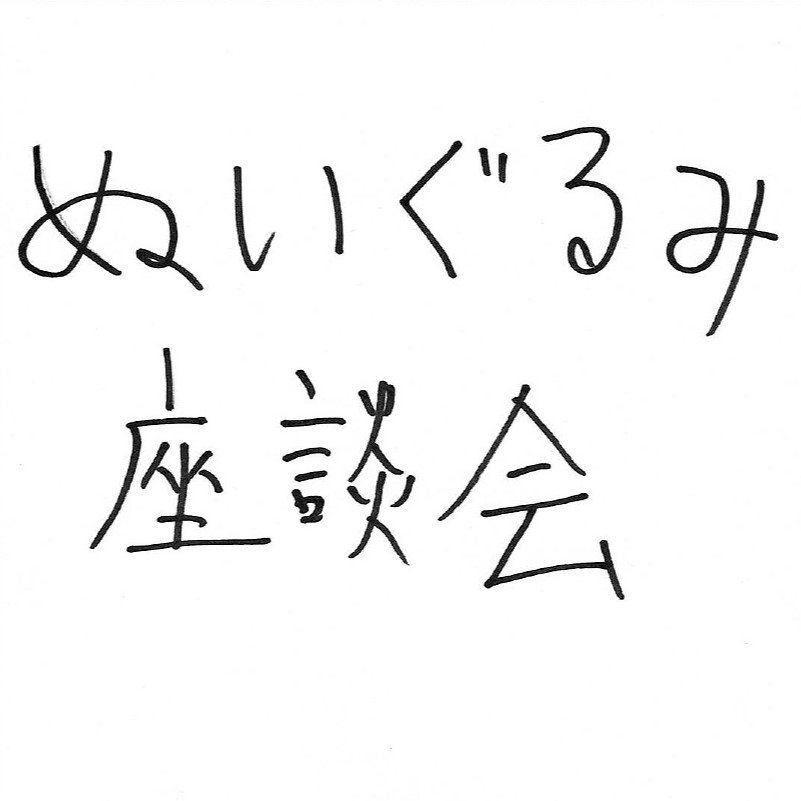 ぬいぐるみ
座談会